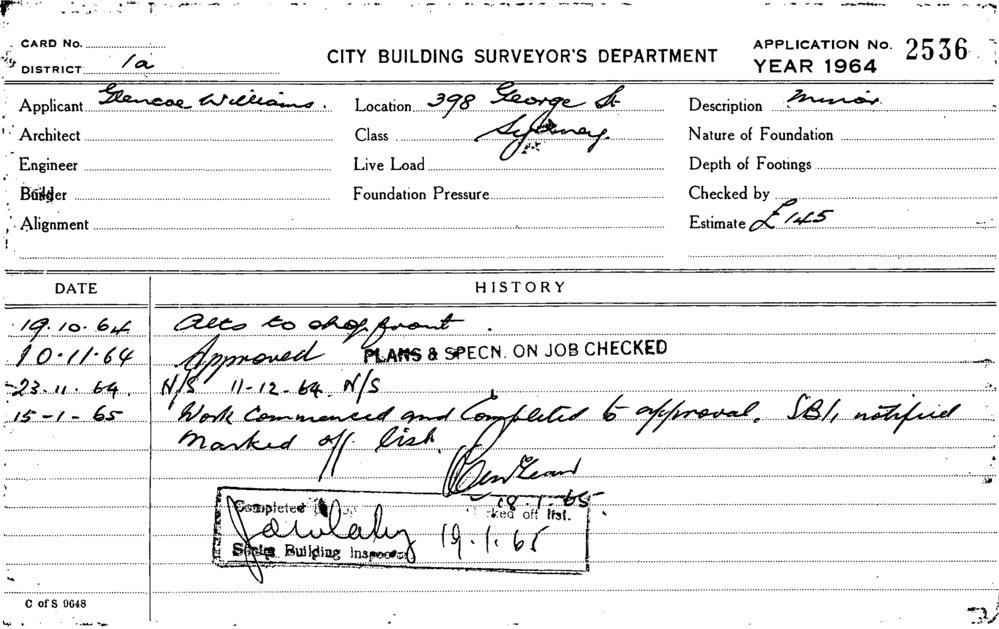 CARD No.
DISTRICT 1a
CITY BUILDING SURVEYOR'S DEPARTMENT
APPLICATION No. 2536
YEAR 1964
Applicant Glencoe Williams. Location 398 George St Description Minor.
Architect Class Sydney. Nature of Foundation
Engineer Live Load Depth of Footings
Builder Foundation Pressure Checked by
Alignment Estimate £145
DATE HISTORY
19.10.64 Alts to shop front.
10.11.64 Approved PLANS & SPECN. ON JOB CHECKED
23.11.64. N/S 11-12-64. N/S
15-1-65 Work Commenced and Completed to approval. SBI, notified
Marked off list.
18-1-65.
Completed
off list.
19.1.65
Building Inspector
C of S 9648